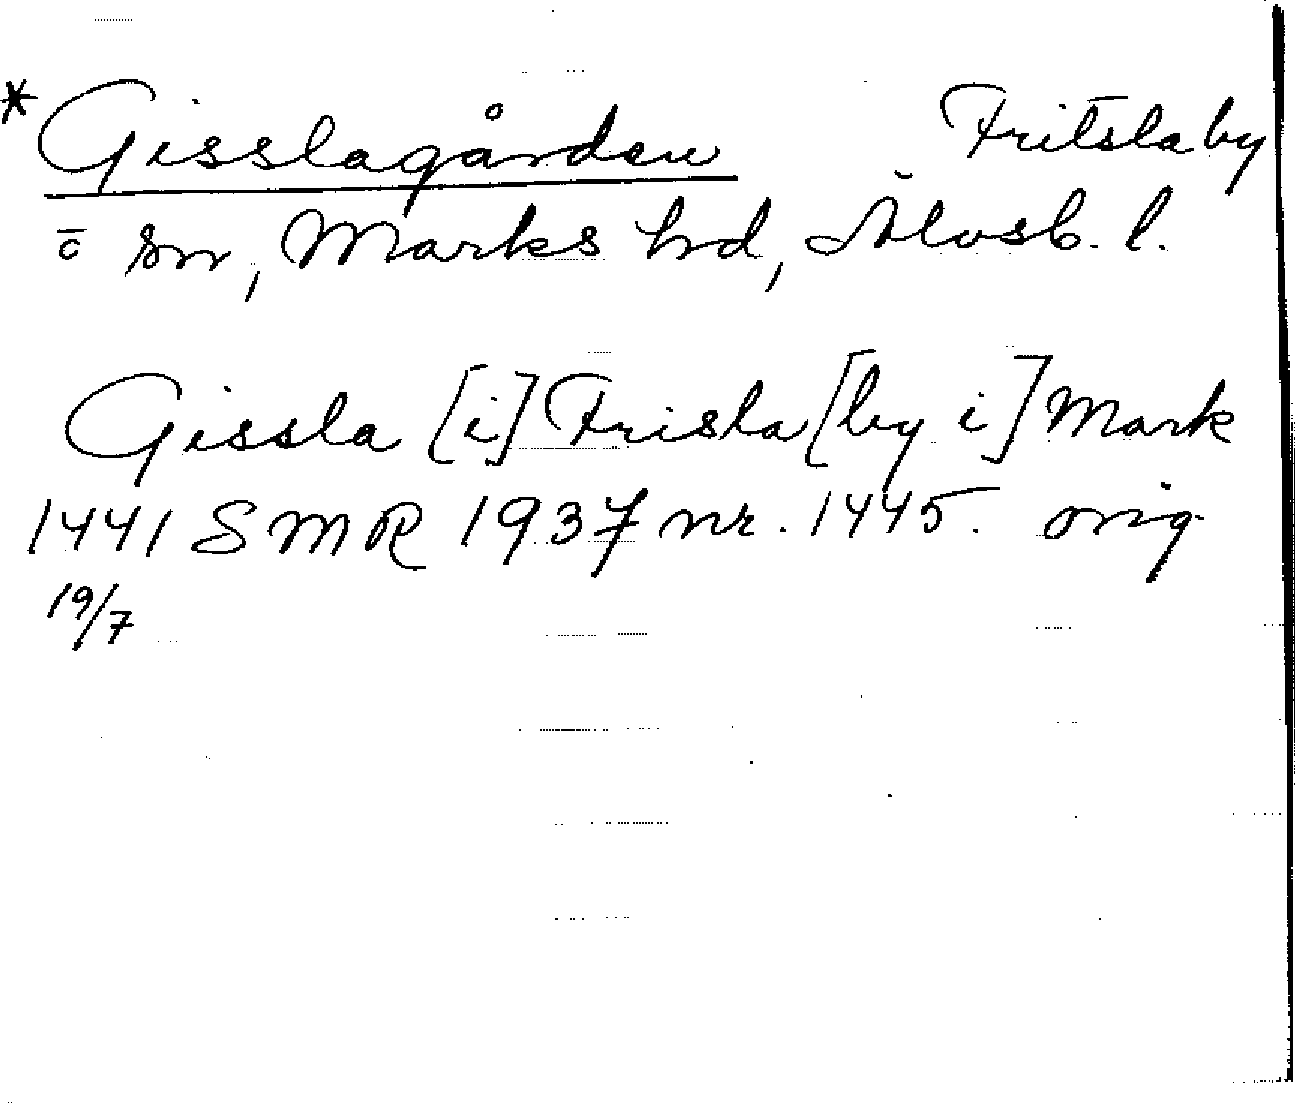 * Gisslagården Fritsla by
o sn, Marks hd, Älvsb. l.
Gissla [i] Frisla [by i] Mark
1441 SMR 1937 nr. 1445. orig
19/7